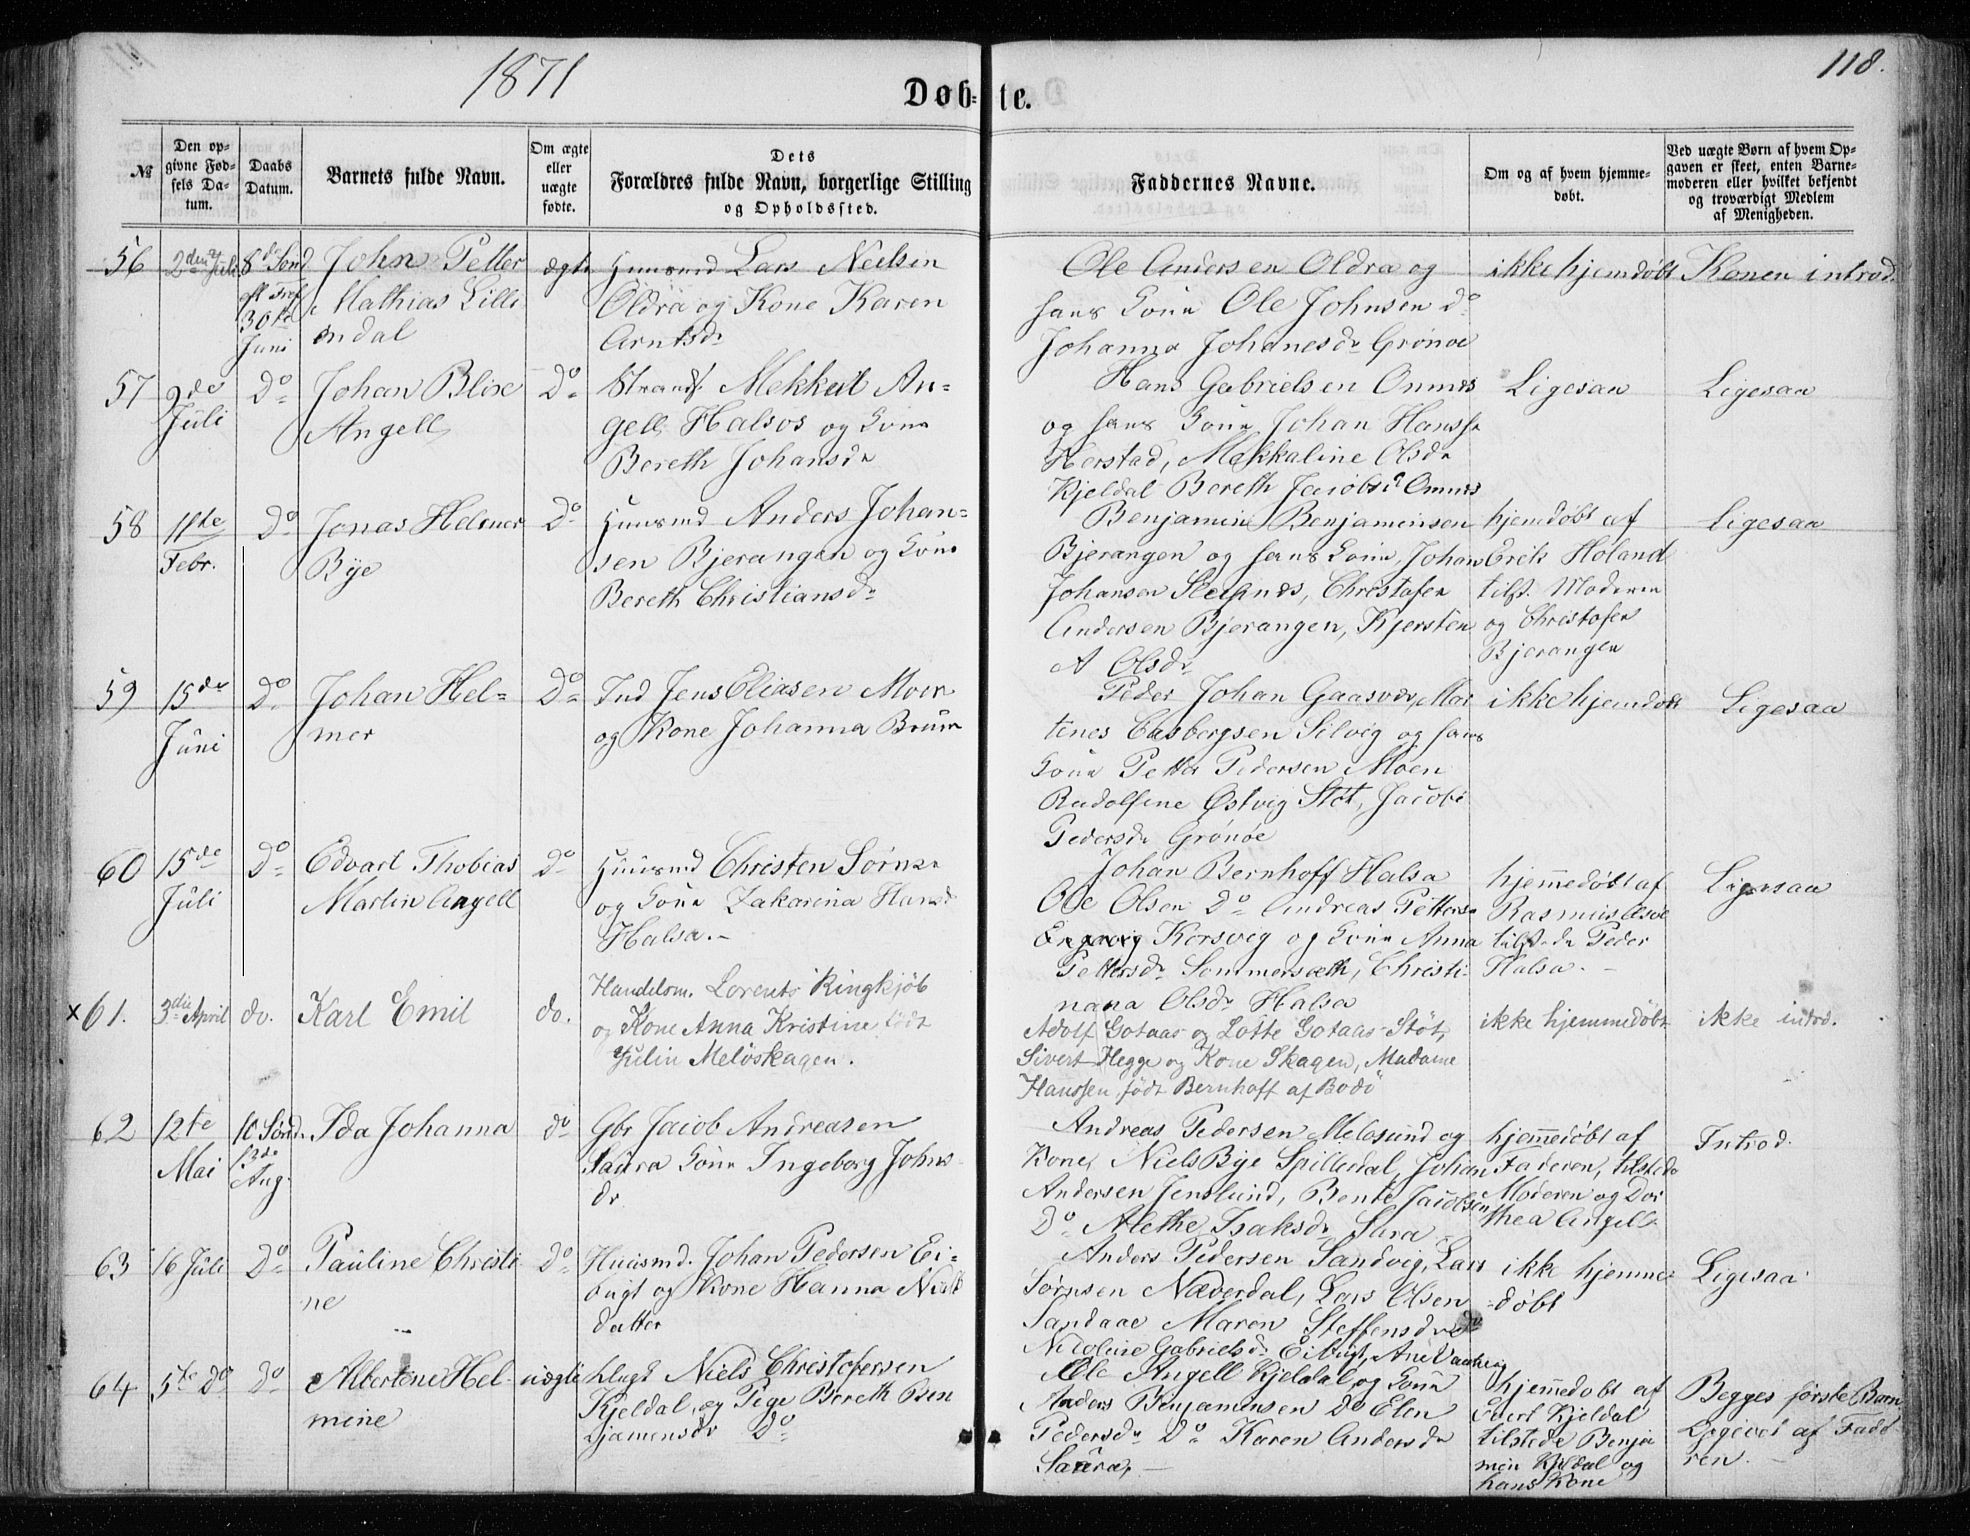 1871
118.
Døb-te.
№
Den op-
givne Fød-
sels Da-
tum.
Daabs
Datum.
Barnets fulde Navn.
Om ægte
eller
uægte
fødte.
Dets
Forældres fulde Navn, borgerlige Stilling
og Opholdssted.
Faddernes Navne.
Om og af hvem hjemme-
døbt.
Ved uægte Børn af hvem Op-
gaven er skeet, enten Barne-
moderen eller hvilket bekjendt
og troværdigt Medlem
af Menigheden.
56
2den Juli
8de Sønd
eft Tref
30te
Juni
John Petter
Mathias Lille
endal
ægte
Huusmd Lars Neilsen
Oldra og Kone Karen
Arntsdr
Ole Andersen Oldra og
hans Kone Ole Johnsen do
Johanna Johanesdr Grønøe
ikke hjemdøbt
Konen introd.
57
2de
Juli
Do
Johan Blix
Angell
Do
Strands. Mekkeal An-
gell Halsos og Kone
Bereth Johansdr
Hans Gabrielsen Onnes
og hans Kone Johan Hanss
Herstad, Mekkaline Olsdr
Kjeldal Bereth Jacobsd Onnes
Ligesaa
Ligesaa
58
11te
Febr.
Do
Jonas Helmer
Bye
Do
Huusmd Anders Johan-
sen Bjerangen og Kone
Bereth Christiansdr
Benjamin Benjaminsen
Bjerangen og hans Kone, Johan
Johansen Selsnes, Christofer
Andersen Bjerangen, Kjersten
A Olsdr
hjemdøbt af
Erik Holand
tilst. Moderen
og Christofer
Bjerangen
Ligesaa
59
15de
Juni
Do
Johan Hel-
mer
Do
Ind Jens Eliasen Moen
og Kone Johanna Bruun
Peder Johan Gaasvær, Mar
tines Casbergsen Silvig og hans
Kone Petter Pedersen Moen
Rudolfine Østvig Støt, Jacobi
Pedersdr Grønøe
ikke hjemdøbt
Ligesaa
60
15de
Juli
Do
Edvart Thobias
Martin Angell
Do
Huusmd Christen Sørns
og Kone Zakarina Hansd
Halsa.-
Johan Bernhoff Halsa
Ole Olsen Do Andreas Petters
Korsvig og Kone Anna
Pettersdr Sommersæth, Christi-
nana Olsdr Halsa
hjemmedøbt af
Rasmus
tilstede Peder
Halsa.-
Ligesaa
x 61.
3die April
do.
Karl Emil
do.
Handelsm. Lorents Ringkjøb
og Kone Anna Kristine født
Julin Meløskagen.
Adolf Gotaas og Lotte Gotaas Støt,
Sivert Hegge og Kone Skagen, Madame
Hanssen født Bernhoft af Bodö
ikke hjemmedøbt
ikke introd.
62
12te
Mai
10 Sønd.
13de
Aug.
Ida Johanna
do
Gbr Jacob Andreasen
Saura Kone Ingeborg Johns-
dr
Andreas Pedersen Meløsund og
Kone, Niels Bye Spilderdal, Johan
Andersen Jenslund, Bente Jacobsen
Do Alethe Isaksdr Sura
hjemmedøbt af
Faderen, tilstede
Moderen og Dor
thea Angell
Introd.
63
16 Juli
Do
Pauline Christi
ne
Do
Huusmd. Johan Pedersen Ei-
bugt og Kone Hanna Niels
datter
Anders Pedersen Sandvig, Lars
Tørnsen Næverdal, Lars Olsen
Sandaae Maren Steffensdr do
Nicoline Gabrielsdr Eibugt, Ane
ikke hjemme-
døbt
Ligesaa
64
5te do
do
Albertine Hel-
mine
uægte
Ungk Niels Christofersen
Kjeldal, og Pige Bereth Ben
jamensdr Do
Ole Angell Kjeldal og Kone
Anders Benjaminsen Do Elen
Pedersdr Do Karen Andersdr
Saura, -
hjemmedøbt af
Evert Kjeldal
tilstede Benja
min Kjeldal og
hans Kone
Begges første Barn
Opgivet af Fade
ren.-